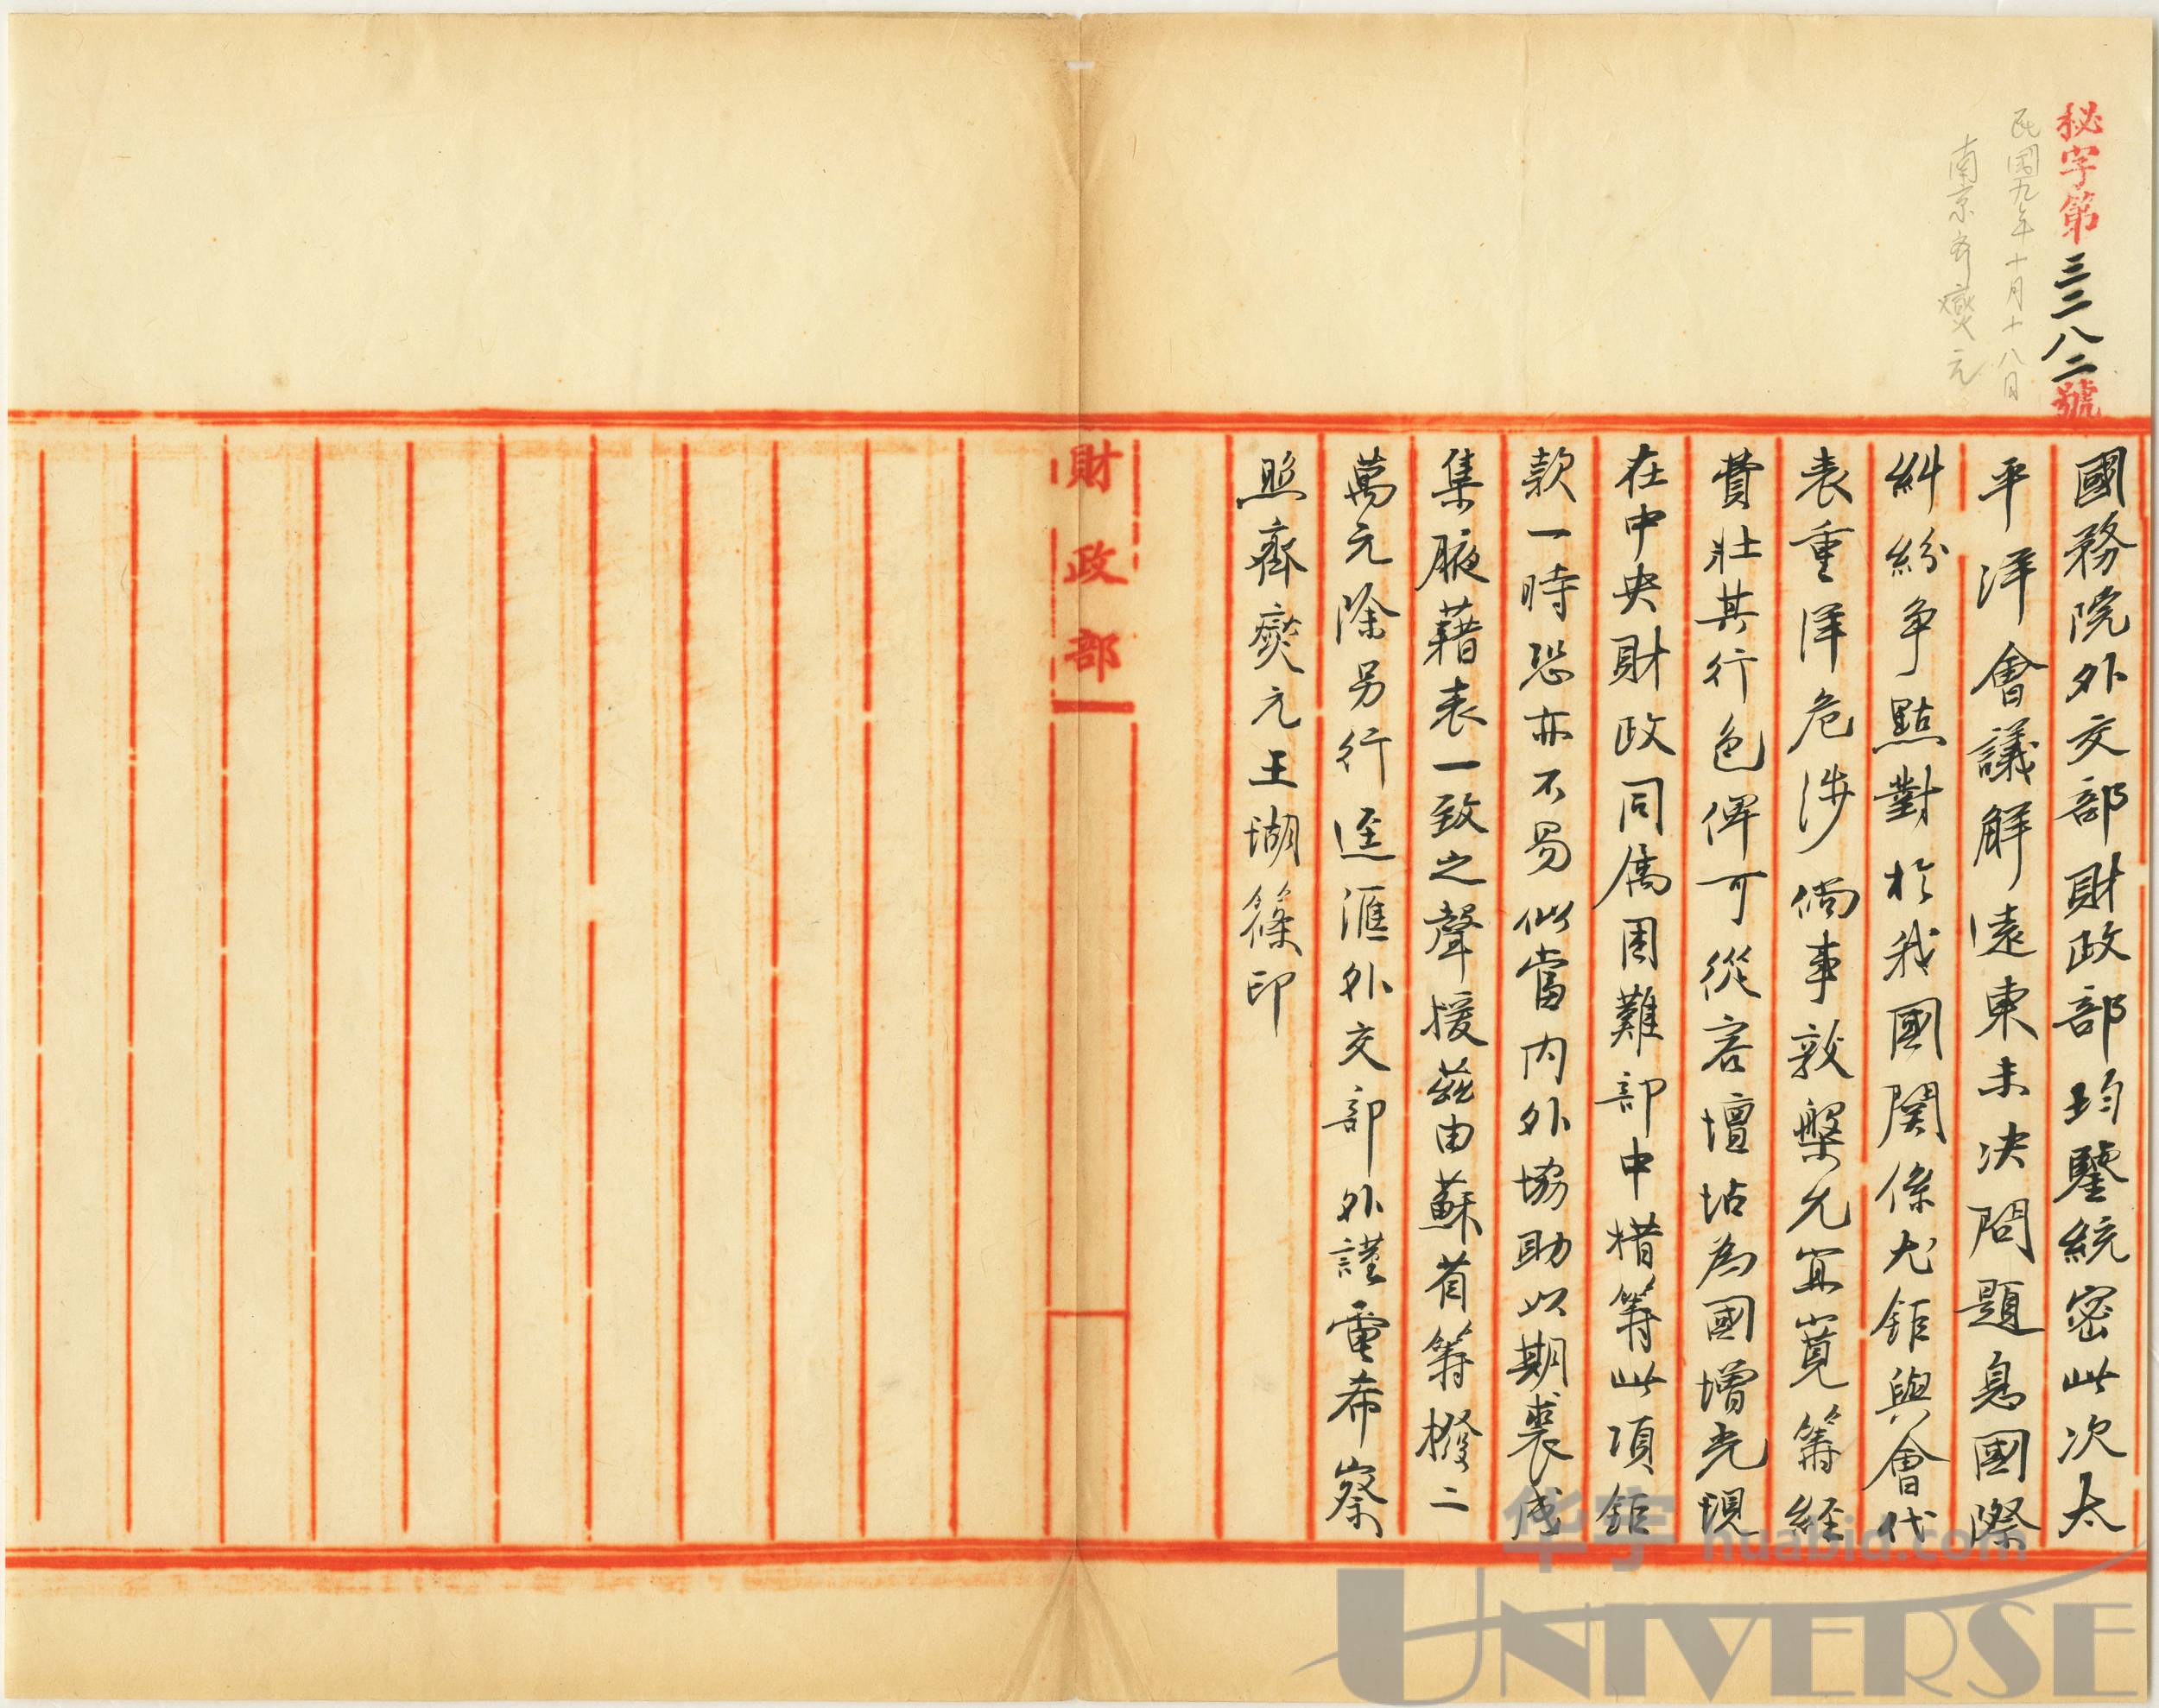 秘字第三二八二號
民國九年十月十八日
南京齐燮元
國務院外交部財政部均鑒統密此次太
平洋會議解遠東未决問題息國際
糾紛爭點對於我國関係尤鉅與會代
表重洋危涉倘事敦槃允宜寬籌經
費壯其行色俾可從容壇坫為國增光現
在中央財政同属困難部中措籌此項鉅
款一時恐亦不易似當内外協助以期裘成
集腋藉表一致之聲援茲由蘇省籌撥二
萬元除另行逕滙外交部外謹電希察
照齊燮元王瑚篠印
財政部
华宇 huabid.com
UNIVERSE